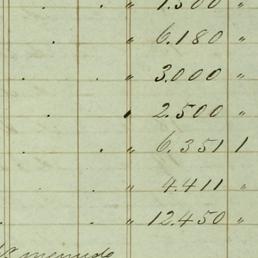 " 1.500 "
" 6.180 "
" 3.000 "
" 2.500 "
" 6.351 1
" 4.411 "
" 12.450 "
menudo